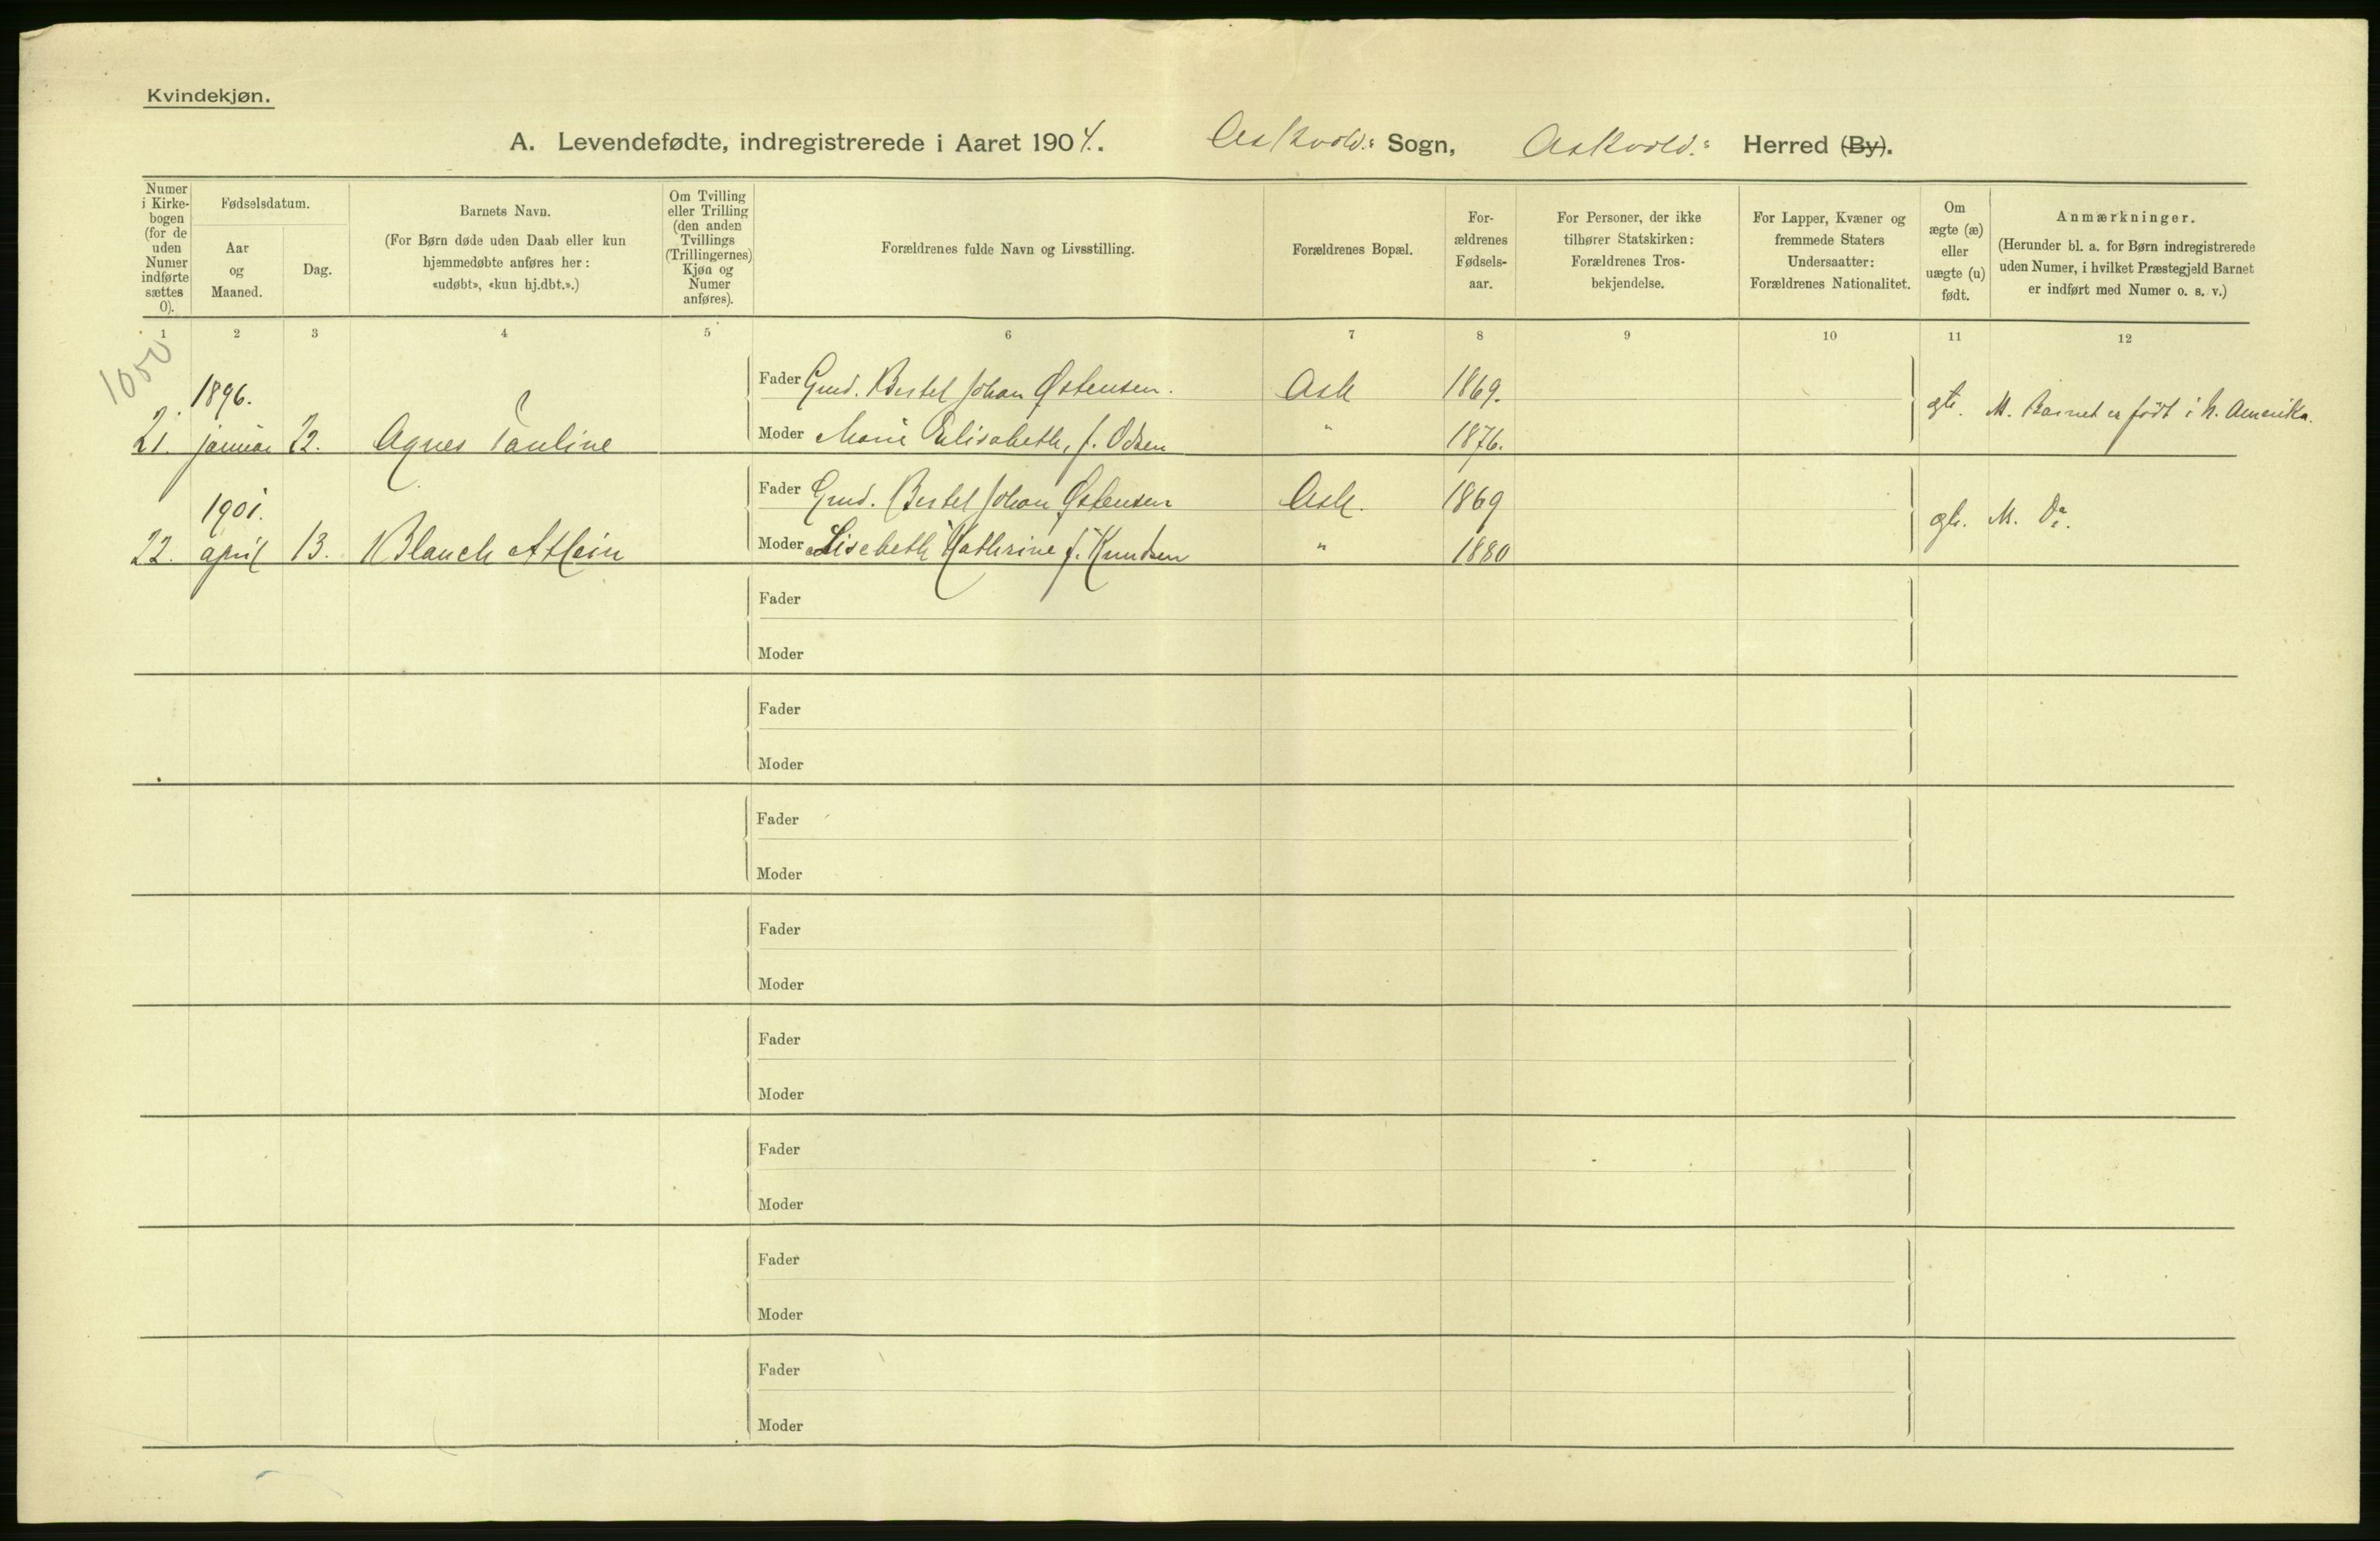 Kvindekjøn.
A. Levendefødte, indregistrerede i Aaret 1904. Askvold: Sogn, Askvold: Herred (By).
Numer i Kirkebogen (for de uden Numer indførte sættes 0).
Fødselsdatum.
Aar og Maaned.
Dag.
Barnets Navn.
(For Børn døde uden Daab eller kun hjemmedøbte anføres her: «udøbt», «kun hj.dbt.».)
Om Tvilling eller Trilling (den anden Tvillings (Trillingernes) Kjøn og Numer anføres).
Forældrenes fulde Navn og Livsstilling.
Forældrenes Bopæl.
Forældrenes Fødselsaar.
For Personer, der ikke tilhører Statskirken: Forældrenes Trosbekjendelse.
For Lapper, Kvæner og fremmede Staters Undersaatter: Forældrenes Nationalitet.
Om ægte (æ) eller uægte (u) født.
Anmærkninger.
(Herunder bl. a. for Børn indregistrerede uden Numer, i hvilket Præstegjeld Barnet er indført med Numer o. s. v.)
1 2 3 4 5 6 7 8 9 10 11 12
1896.
Fader Gmd. Bertel Johan Østensen. Ask 1869.
gte. M. Barnet er født i N. Amerika.
21. januar 22. Agnes Pauline Moder Marie Elisabeth, f. Odsen " 1876.
1901.
Fader Gmd. Bertel Johan Østensen Ask. 1869
gte. M. Do.
22. april 13. Blanch Moder Lisebeth Kathrine f. Knudsen " 1880
Fader
Moder
Fader
Moder
Fader
Moder
Fader
Moder
Fader
Moder
Fader
Moder
Fader
Moder
Fader
Moder